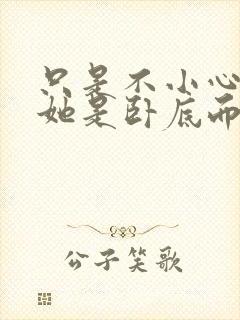 只是不小心
她是卧底而
公子笑歌